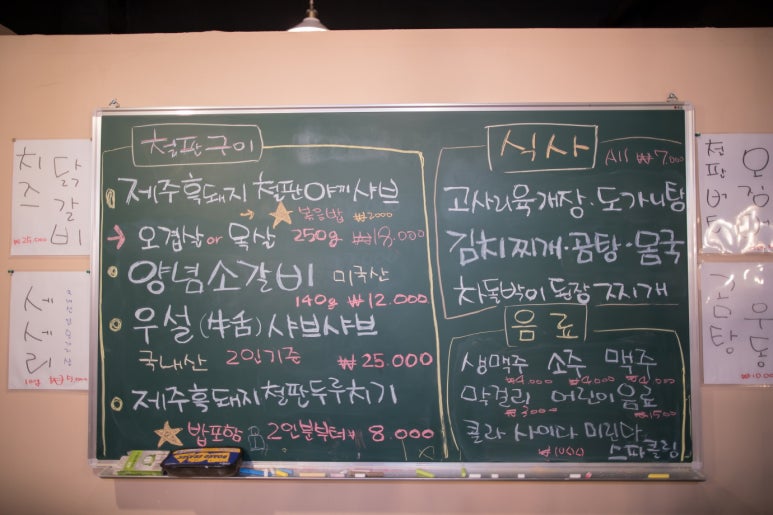 철판구이
제주흑돼지 철판야끼샤브
볶음밥 ₩2000
오겹살 or 목살 250g ₩18.000
양념소갈비 미국산
140g ₩12.000
우설 (牛舌) 샤브샤브
국내산 2인기준 ₩25.000
제주흑돼지철판두루치기
밥포함 2인분부터 8.000
식사 All ₩7.000
고사리육개장·도가니탕
김치찌개·곰탕·몸국
차돌박이 된장찌개
음료
생맥주 소주 맥주
₩4.000 ₩4.000 ₩4.000
막걸리 어린이음료
₩3000 ₩1500
콜라 사이다 미린다
스파클링
치즈
닭갈비
₩25.000